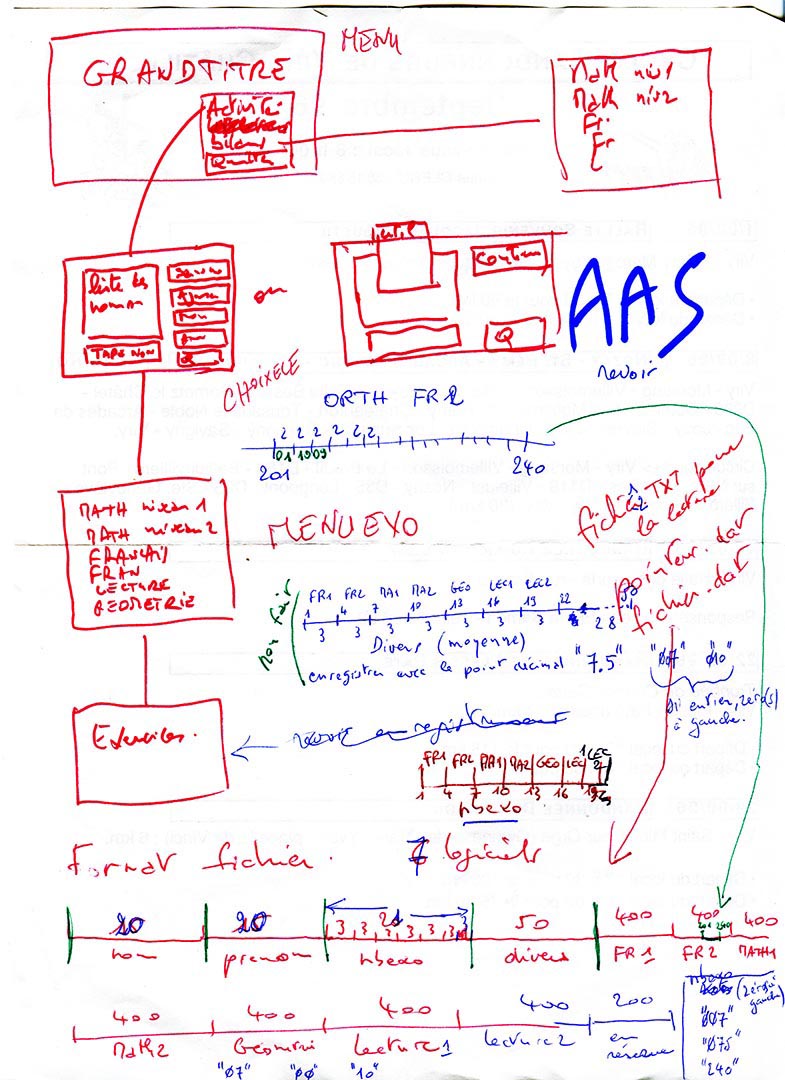 MENU
GRANDTITRE
Activité
bilans
Quitter
Math niv1
Math niv2
Fr.
Fr
liste des
TAPE NOM
Q
ou
Q
AAS
revoir
CHOIXELE
ORTH FR 2
2 2 2 2 2 2 2
201
240
MATH niveau 1
MATH niveau 2
FRANÇAIS
FRAN
LECTURE
GEOMETRIE
MENUEXO
fichier TXT pour
la lecture
pointeur.dat
fichier.dat
non fait
FR1 FR2 MA1 MA2 GEO LEC1 LEC2
1 4 7 10 13 16 19 22 28
3 3 3 3 3 3 3
Divers (moyenne)
enregistrer avec le point décimal "7.5"
"007" "010"
si entier, zéro(s)
à gauche.
Exercices.
revoir enregistrement
FR1 FR2 MA1 MA2 GEO LEC1 LEC2
1 4 7 10 13 16 19
nbexo
Format fichier. 7 logiciels
20 20 21 50 400 400 400
3 3 3 3 3 3 3
nom prenom nbexo divers FR1 FR2 MATH1
400 400 400 400 200
Math2 Géométrie lecture1 lecture2 en réserve
"07" "00" "10"
nbexo
(zéros à
gauche)
"007"
"075"
"240"